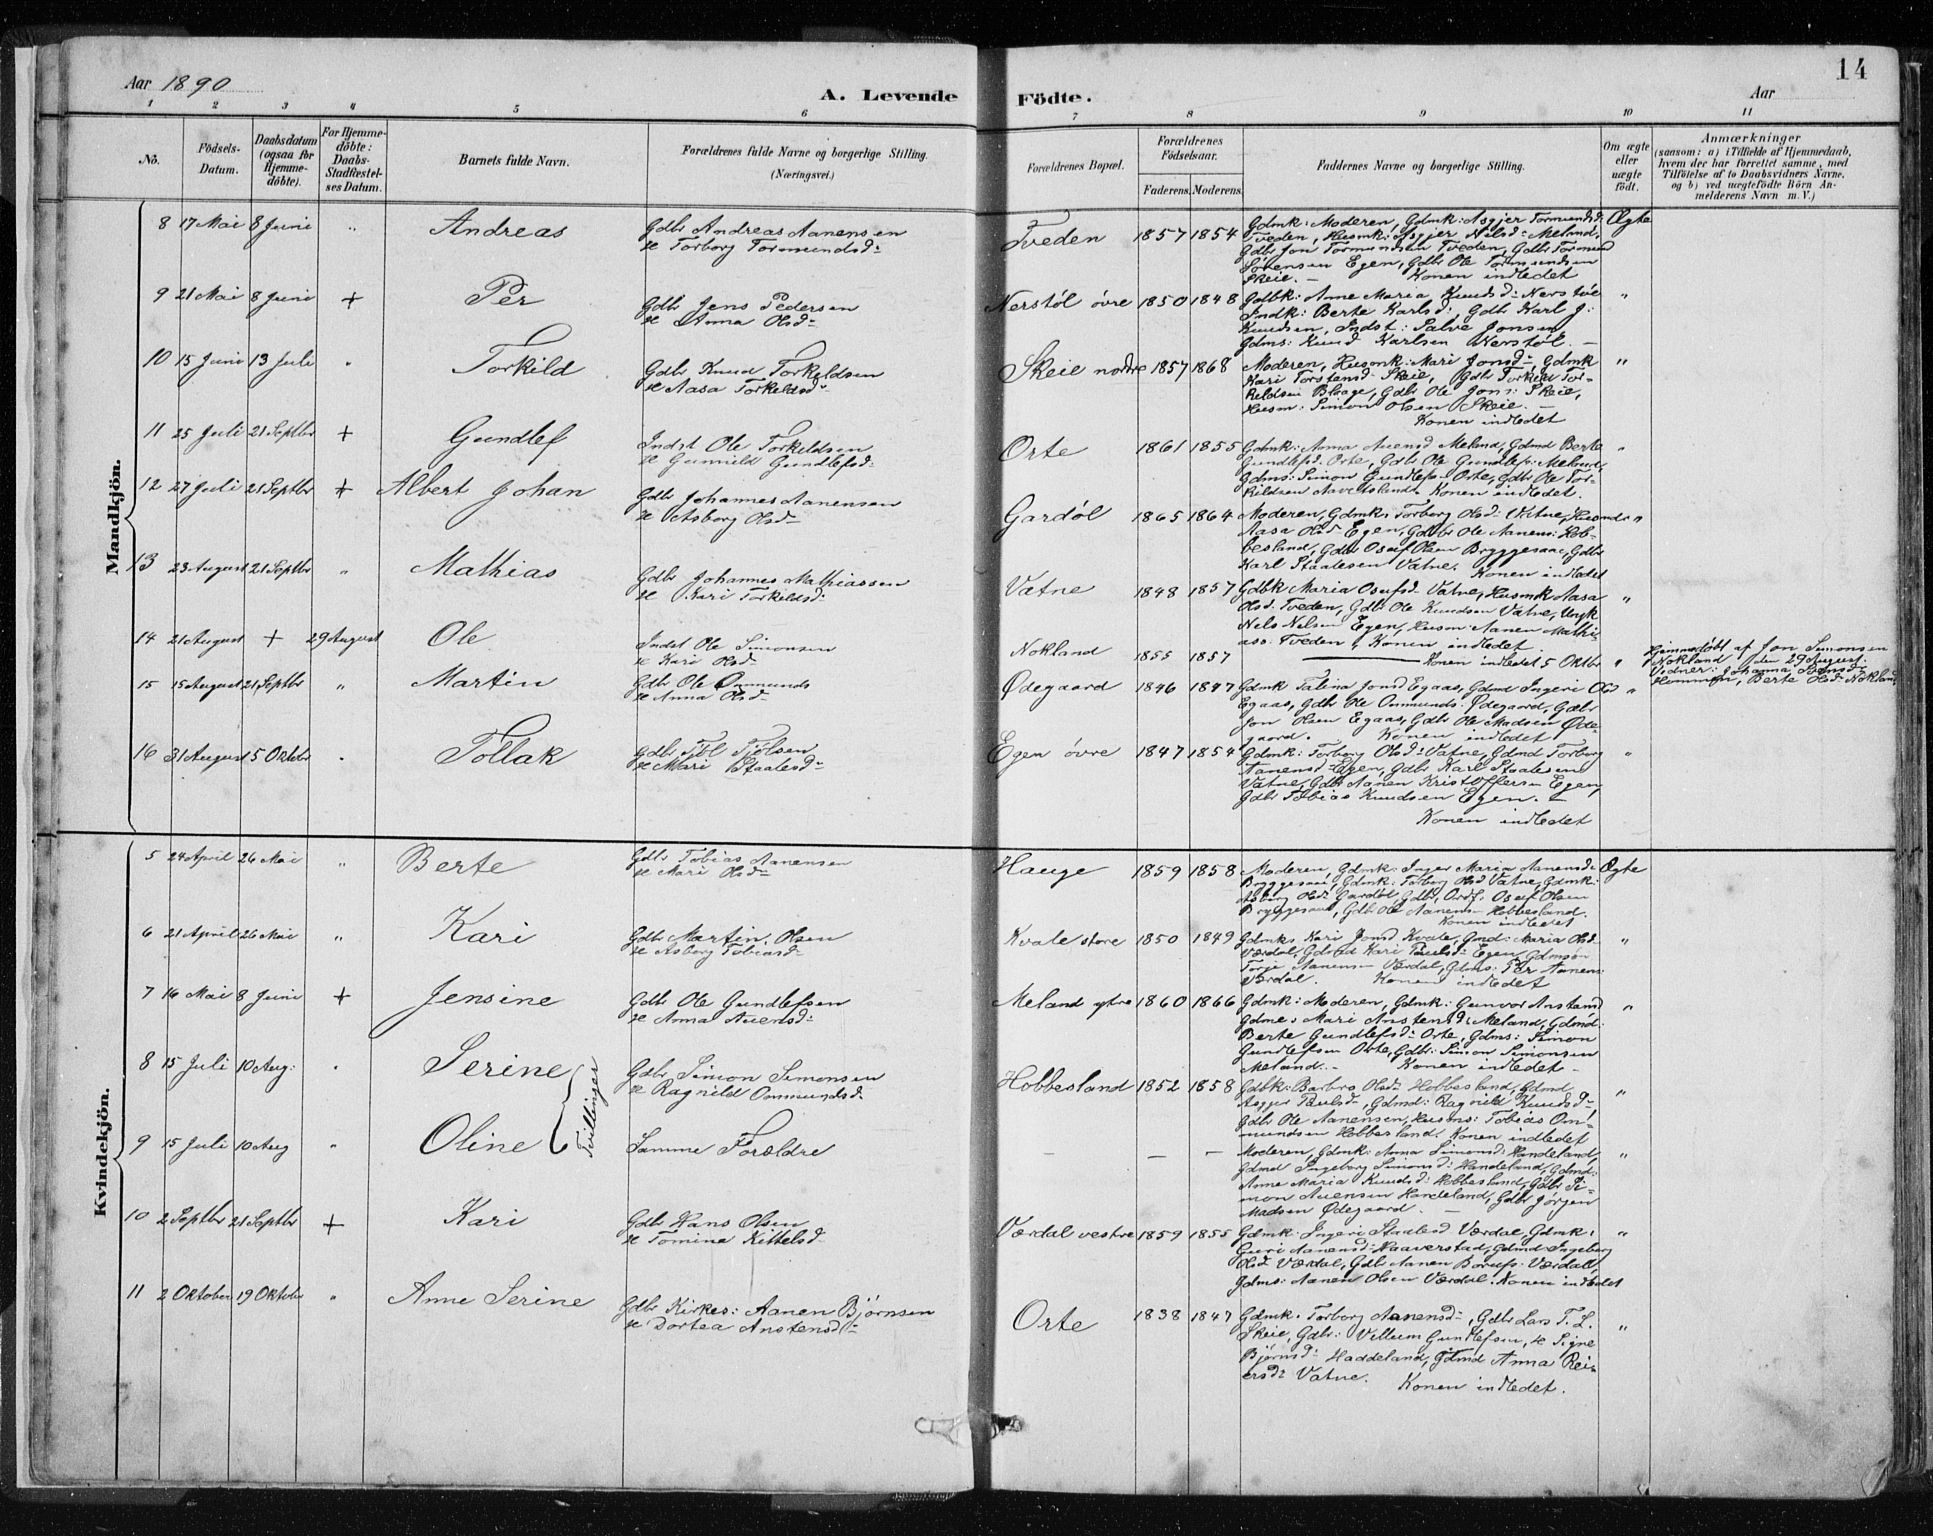 Aar 1890
A. Levende Födte.
Aar
14
1 2 3 4 5 6 7 8 9 10 11
No.
Födsels-
Datum.
Daabsdatum
(ogsaa for
Hjemme-
döbte).
For Hjemme-
döbte:
Daabs-
Stadfæstel-
ses Datum.
Barnets fulde Navn.
Forældrenes fulde Navne og borgerlige Stilling.
(Næringsvei.)
Forældrenes Bopæl.
Forældrenes
Födselsaar.
Faderens. Moderens.
Faddernes Navne og borgerlige Stilling.
Om ægte
eller
uægte
födt.
Anmærkninger
(saasom: a) i Tilfælde af Hjemmedaab,
hvem der har forrettet samme, med
Tilföielse af to Daabsvidners Navne,
og b) ved uægtefödte Börn An-
melderens Navn m. V.)
Mandkjön.
8 17 Mai 8 Juni " Andreas
Gdbr Andreas Aanensen
Torborg Tormundsd:
Tveden 1857 1854
Gdmk: Moderen, Gdmk: Asgjer Tormundsd:
Tveden, Husmk: Asgjer Nilsd: Meland,
Gdbr Jon Tormundsen Tveden, Gdbr Tormund
Sörensen Egen, Gdbr Ole Tormundsen
Skeie. — Konen indledet
Ægte
9 21 Mai 8 Juni + Per
Gdbr Jens Pedersen
Anna Olsd:
Nerstöl övre 1850 1848
Gdbk: Anne Maria Knudsd: Nerstöl
Indk: Berte Karlsd, Gdbr Karl J:
Knudsen, Indst: Salve Jonsen
Gdms: Knud Karlsen Nerstöl. —
"
10 15 Juni 13 Juli " Torkild
Gdbr Knud Torkildsen
Aasa Torkildsd:
Skeie nordre 1857 1868
Moderen, Husmk: Mari Jonsd:, Gdmk
Kari Torstensd: Skeie, Gdbr Torkild Tor-
kildsen Bhage, Gdbr Ole Jons: Skeie,
Husm: Simon Olsen Skeie. —
Konen indledet
"
11 25 Juli 21 Septbr + Gundlef
Indst Ole Torkildsen
Gunnild Gundlefsd:
Orte 1861 1855
Gdmk: Anna Auensd Meland, Gdmd Berte
Gundlefsd: Orte, Gdbr Ole Gundlefs: Meland,
Gdms: Simon Gundlefs: Orte, Gdbr Ole Tor-
kildsen. Konen indledet.
"
12 27 Juli 21 Septbr + Albert Johan
Gdbr Johannes Aanensen
Asborg Olsd:
Gardöl 1865 1864
Moderen, Gdmk: Torborg Olsd: Vatne,
Aasa Olsd Egen, Gdbr Ole Aanens: Hob-
besland, Gdbr Osuf Olsen Bryggesaae, Gdbr
Karl Staalesen Vatne. Konen indledet
"
13 23 August 21 Septbr " Mathias
Gdbr Johannes Mathiassen
Kari Torkildsd:
Vatne 1848 1857
Gdbk Maria Osufsd: Vatne, Husmk Aasa
Olsd: Tveden, Gdbr Ole Knudsen Vatne, Ungk
Nels Nelsen Egen, Husm: Aanen Mathi-
ass: Tveden, Konen indledet
"
14 21 August + 29 August Ole
Indst Ole Simonsen
Kari Olsd:
Nokland 1855 1857
Konen indledet 5 Oktbr
"
Hjemmedöbt af Jon Simonsen
Nokland den 29 August.
Vidner: Johanna
Berte Olsd: Nokland
15 15 August 21 Septbr " Martin
Gdbr Ole Ommunds
Anna Olsd:
Ödegaard 1846 1847
Gdmk Talina Jonsd Egaas, Gdmd Ingeri Olsd
Egaas, Gdbr Ole Ommunds: Ödegaard, Gdbr
Jon Olsen Egaas, Gdbr Ole Madsen Öde-
gaard. Konen indledet
"
16 31 August 5 Oktober " Tollak
Gdbr Töl Tjölsen
Mari Staalesd:
Egen övre 1847 1854
Gdmk: Torborg Olsd: Vatne, Gdmd Torborg
Aanensd: Egen, Gdbr Karl Staalesen
Vatne, Gdbr Aanen Kristoffersen Egen,
Gdbr Tobias Knudsen Egen. —
Konen indledet
"
Kvindekjön.
5 24 April 26 Mai " Berte
Gdbr Tobias Aanensen
Mari Olsd:
Hauge 1859 1858
Moderen, Gdmk: Inger Maria Aanensd:
Bryggesaae, Gdmk: Torborg Olsd Vatne, Gdmk:
Asborg Olsd: Gardöl, Gdbr, Ordf. Osuf Olsen
Bryggesaae, Gdbr Ole Aanens: Hobbesland.
Konen indledet
Ægte
6 21 April 26 Mai " Kari
Gdbr Martin Olsen
Asborg Tobiasd:
Kvale store 1850 1849
Gdmk: Kari Jonsd Kvale, Gmd: Maria Olsd:
Værdal, Gdmd Kari Paulsd: Egen, Gdmsön
Torje Aanens: Værdal, Gdms: Per Aanens:
Værdal. Konen indledet
"
7 16 Mai 8 Juni + Jensine
Gdbr Ole Gundlefsen
Anna Auensd:
Meland ytre 1860 1866
Gdmk: Moderen, Gdmk: Gunvor Anstensd
Gdmd: Mari Anstensd: Meland, Gdmd:
Berte Gundlefsd: Orte, Gdms: Simon
Gundlefsen Orte, Gdbr: Simon Simonsen
Meland. Konen indledet —
"
8 15 Juli 10 Aug: " Serine
Gdbr Simon Simonsen
Ragnild Ommundsd:
Hobbesland 1852 1858
Gdbk: Barbro Olsd: Hobbesland, Gdmd
Asgjer Paulsd:, Gdmd: Ragnild Knudsd:
Gdbr Ole Aanensen, Husms: Tobias Om-
mundsen Hobbesland. Konen indledet
"
Tvillinger
9 15 Juli 10 Aug " Oline
Samme Forældre
— — —
Moderen, Gdmk: Anna Simonsd: Handeland,
Gdmd Ingeborg Simonsd: Handeland, Gdmd:
Anne Maria Knudsd: Hobbesland, Gdbr Si-
mon Auensen Handeland, Gdbr Jörgen
Madsen Ödegaard. —
"
10 2 Septbr 21 Septbr + Kari
Gdbr Hans Olsen
Tomine Kittelsd
Værdal vestre 1859 1855
Gdmk: Ingeri Staalesd Værdal, Gdmk:
Guri Aanensd: Haaverstad, Gdmd Ingeborg
Olsd Værdal, Gdbr Aanen Værdal,
Gdms: Aanen Olsen Værdal. Konen indledet
"
11 2 Oktober 19 Oktober " Anne Serine
Gdbr Kirkes: Aanen Björnsen
Dortea Anstensd:
Orte 1838 1847
Gdmk: Torborg Aanensd:, Gdbr Lars T. L.
Skeie, Gdbr: Villum Gundlefsen, Signe
Björnsd: Haddeland, Gdmd Anna Rei-
ersd: Vatne. Konen indledet.
"